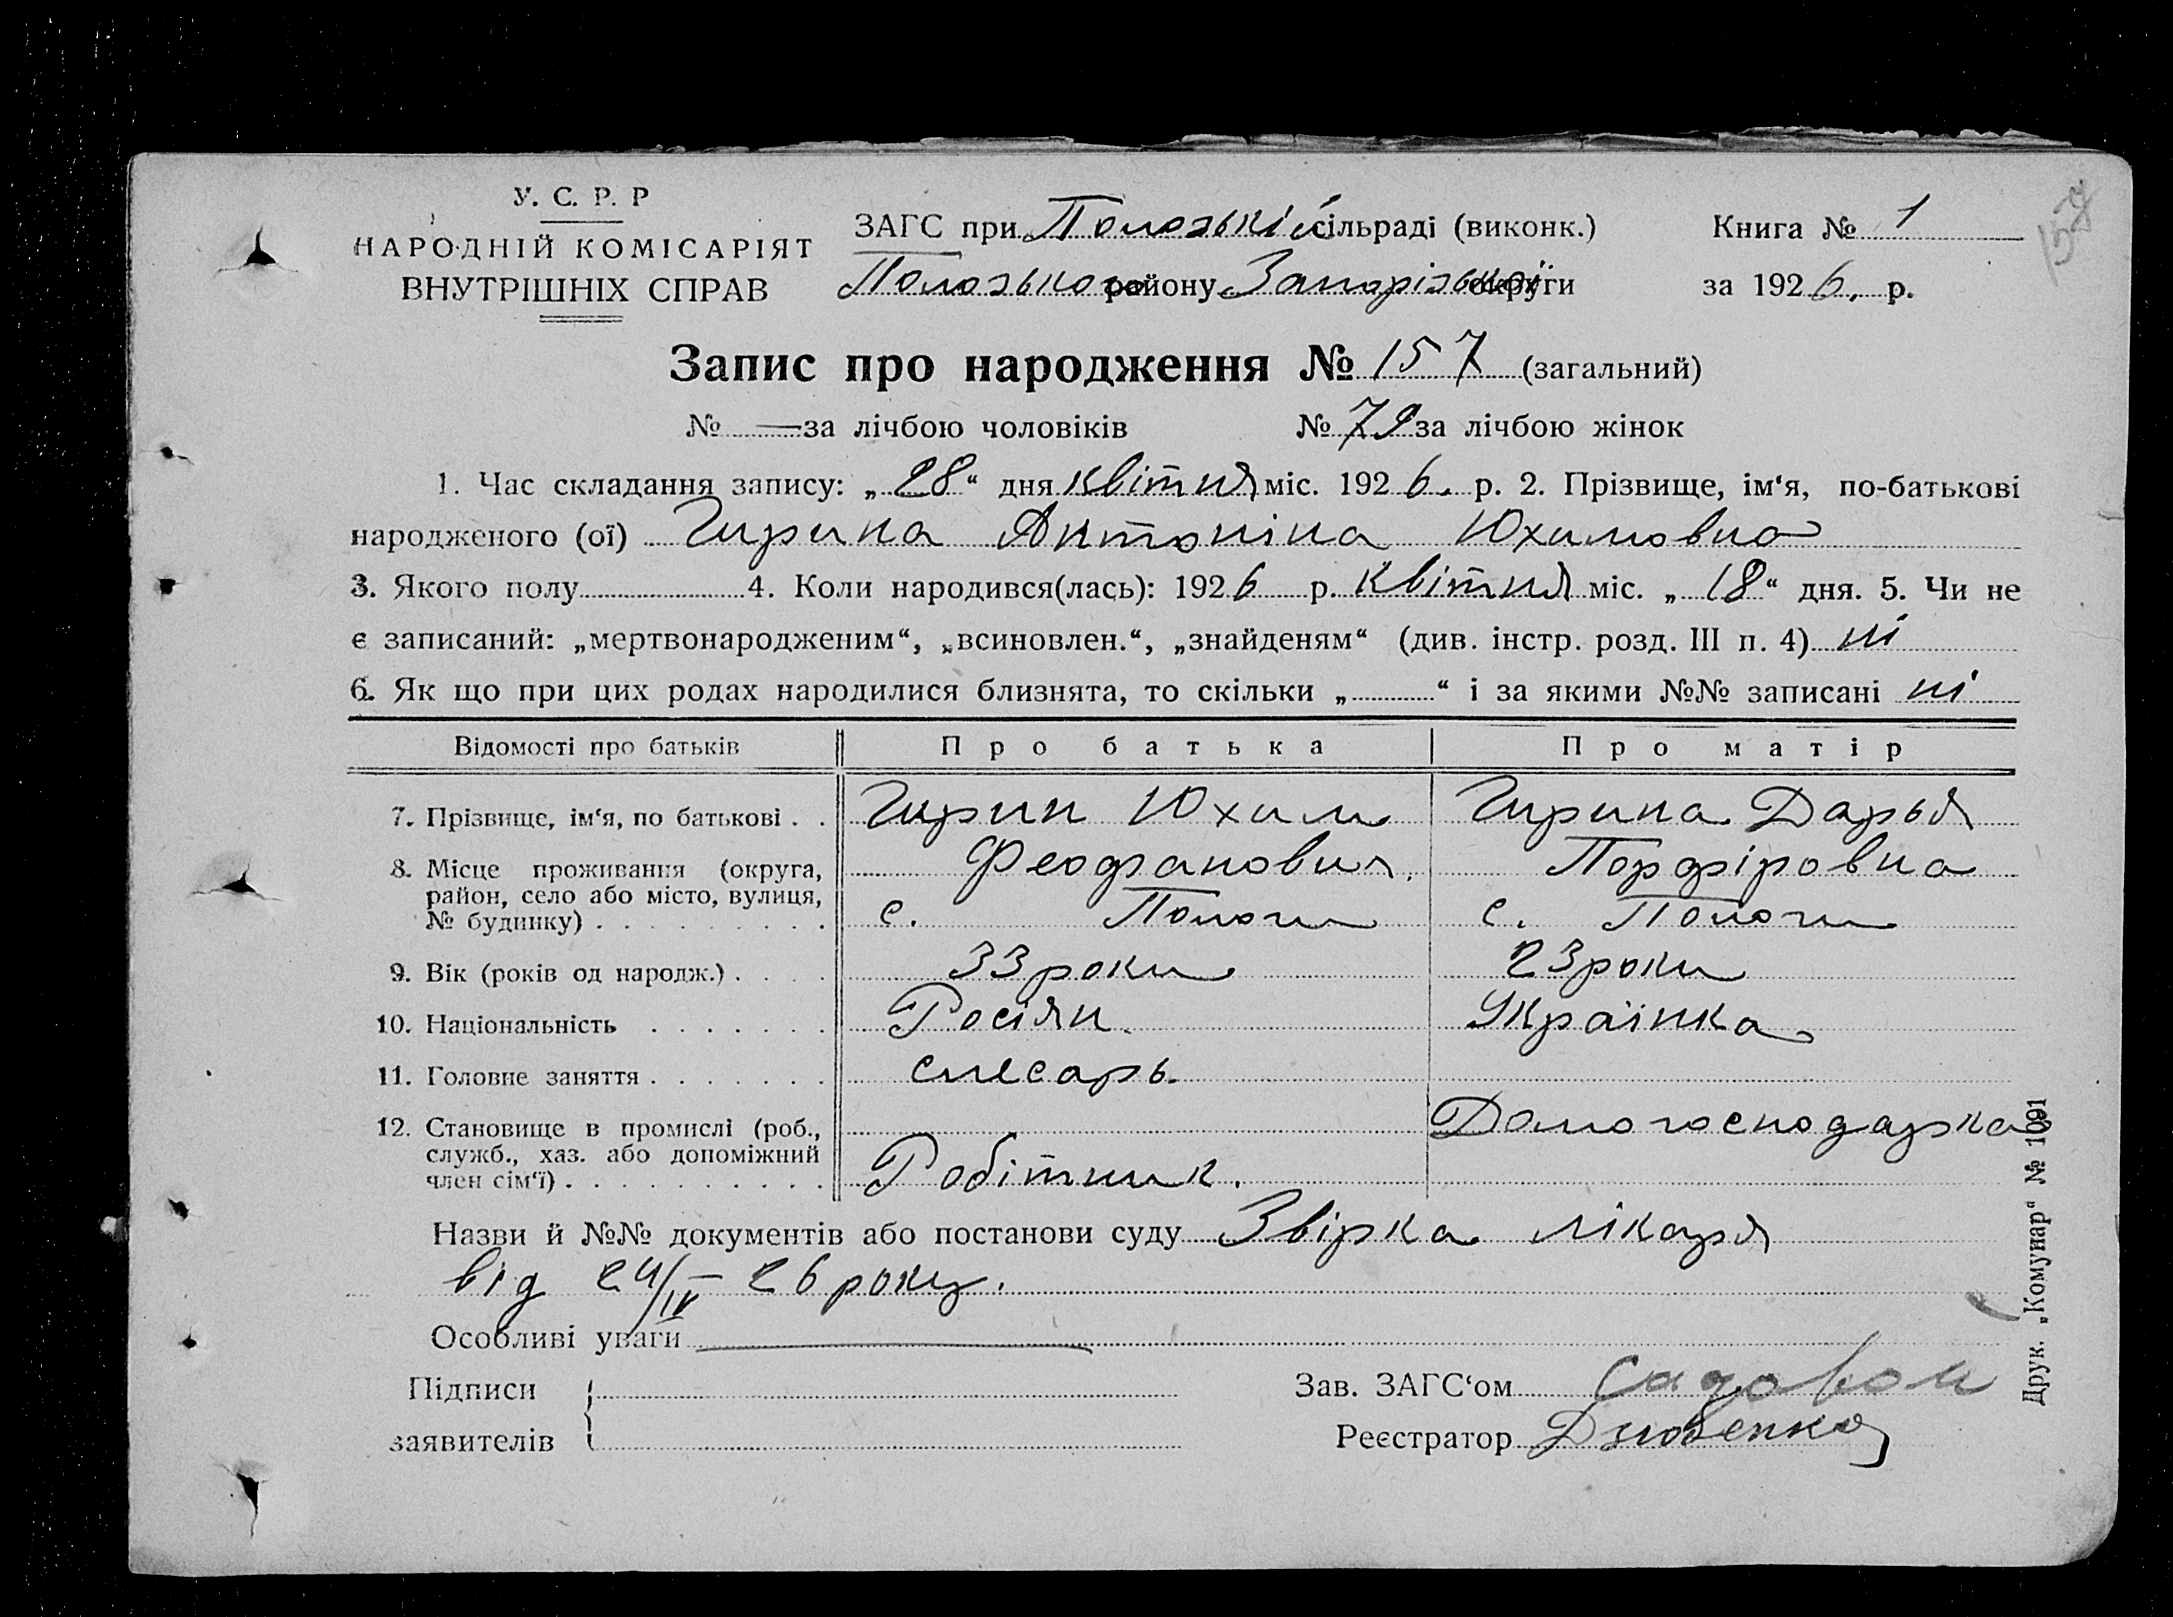 157
У. С. Р. Р
НАРОДНІЙ КОМІСАРІЯТ
ВНУТРІШНІХ СПРАВ
ЗАГС при Полозькій сільраді (виконк.)
Полозького району Запорізької округи
Книга № 1
за 1926. р.
Запис про народження № 157 (загальний)
№ — за лічбою чоловіків № 79 за лічбою жінок
1. Час складання запису: „28“ дня квітня міс. 1926. р. 2. Прізвище, ім‘я, по-батькові
народженого (ої) Гирина Антоніна Юхимовна
3. Якого полу 4. Коли народився(лась): 1926 р. квітня міс. „18“ дня. 5. Чи не
є записаний: „мертвонародженим“, „всиновлен.“, „знайденям“ (див. інстр. розд. III п. 4) ні
6. Як що при цих родах народилися близнята, то скільки „ “ і за якими №№ записані ні
Відомості про батьків Про батька Про матір
7. Прізвище, ім‘я, по батькові . . Гирин Юхим Гирина Дарья
Феофанович. Порфіровна
8. Місце проживання (округа,
район, село або місто, вулиця,
№ будинку) . . . . . . . . . с. Пологи с. Пологи
9. Вік (років од народж.) . . . . 33 роки 23 роки
10. Національність . . . . . . . Росіян. Українка
11. Головне заняття . . . . . . . слесарь.
12. Становище в промислі (роб.,
служб., хаз. або допоміжний
член сім‘ї) . . . . . . . . . . Робітник. Домогосподарка
Назви й №№ документів або постанови суду Звірка лікаря
від 24/IV – 26 року.
Особливі уваги
Підписи
заявителів
Зав. ЗАГС‘ом
Реєстратор
Друк. „Комунар“ № 1091